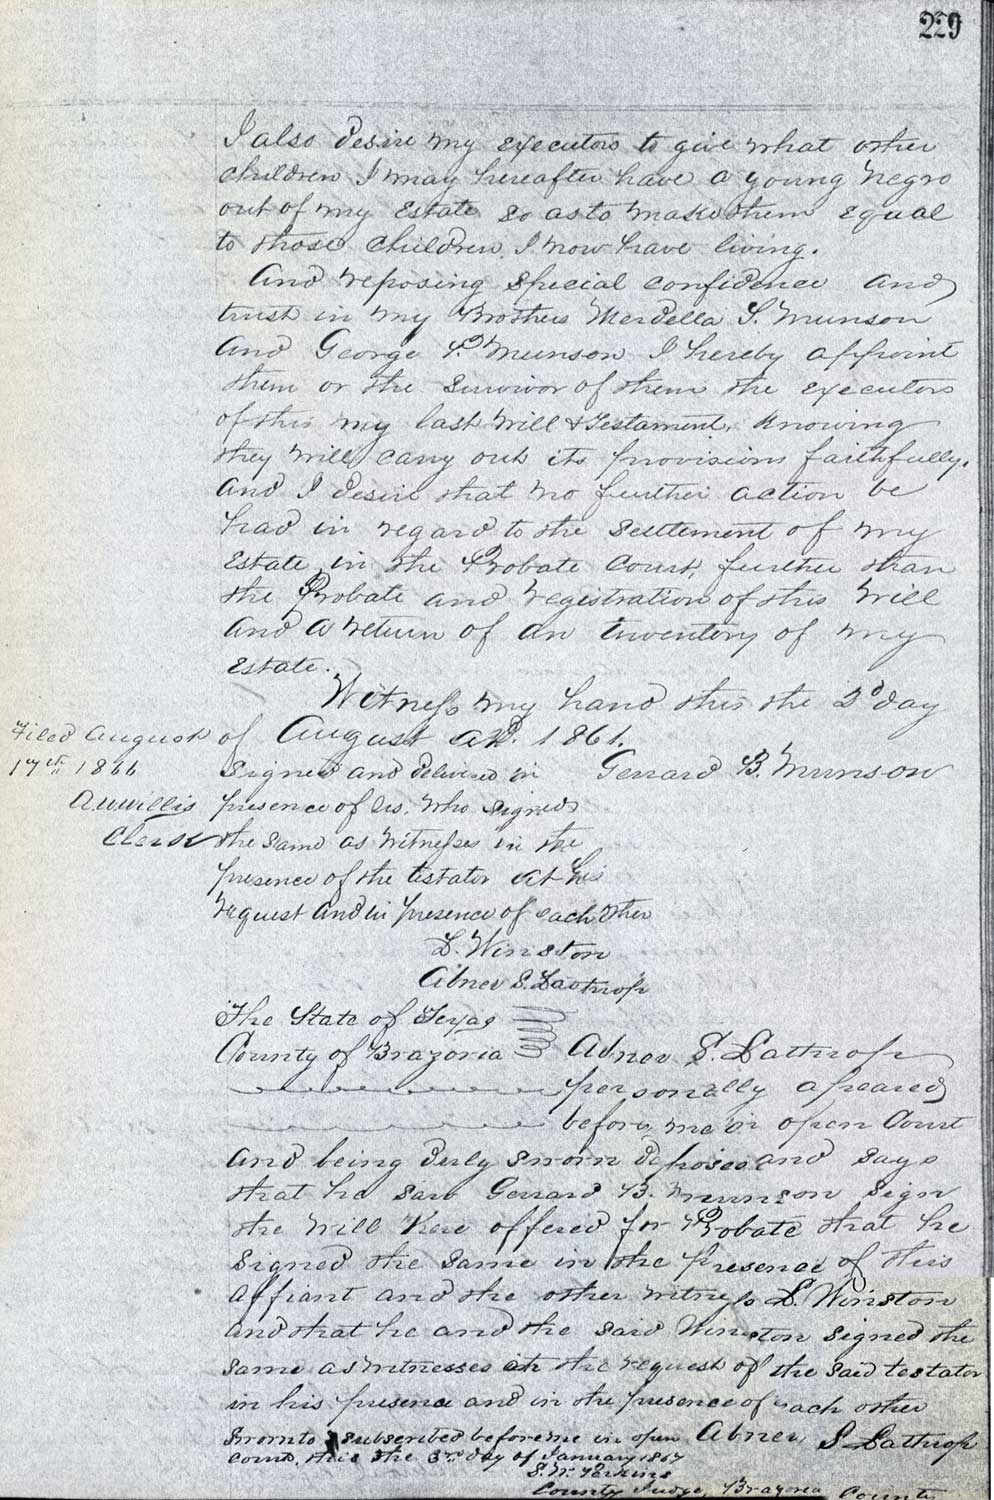 229
I also desire my executors to give what other
children I may hereafter have a young negro
out of my Estate so as to make them equal
to those children I now have living.
And reposing special confidence and
trust in my Brothers Mordella S. Munson
and George P. Munson I hereby appoint
them or the survivor of them the executors
of this my last Will & Testament, Knowing
they will carry out its provisions faithfully.
And I desire that no further action be
had in regard to the settlement of my
Estate in the Probate Court, further than
the Probate and registration of this Will
and a return of an inventory of my
Estate.
Witness my hand this the 2d day
of August AD. 1861.
Filed August
17th 1866
Clerk
Gerrard B. Munson
Signed and delivered in
presence of us. who signed
the same as witnesses in the
presence of the testator at his
request and in presence of each other
L. Winston
Abner S. Lathrop
The State of Texas
County of Brazoria Abner S. Lathrop
personally apeared
before me in open Court
and being duly sworn deposes and says
that he saw Gerrard B. Munson sign
the Will here offered for Probate that he
signed the same in the presence of this
affiant and the other witness L. Winston
and that he and the said Winston signed the
same as witnesses at the request of the said testator
in his presence and in the presence of each other
Sworn to & subscribed before me in open Abner S Lathrop
Court, this the 3rd day of January 1867
S. W. Perkins
County Judge, Brazoria County